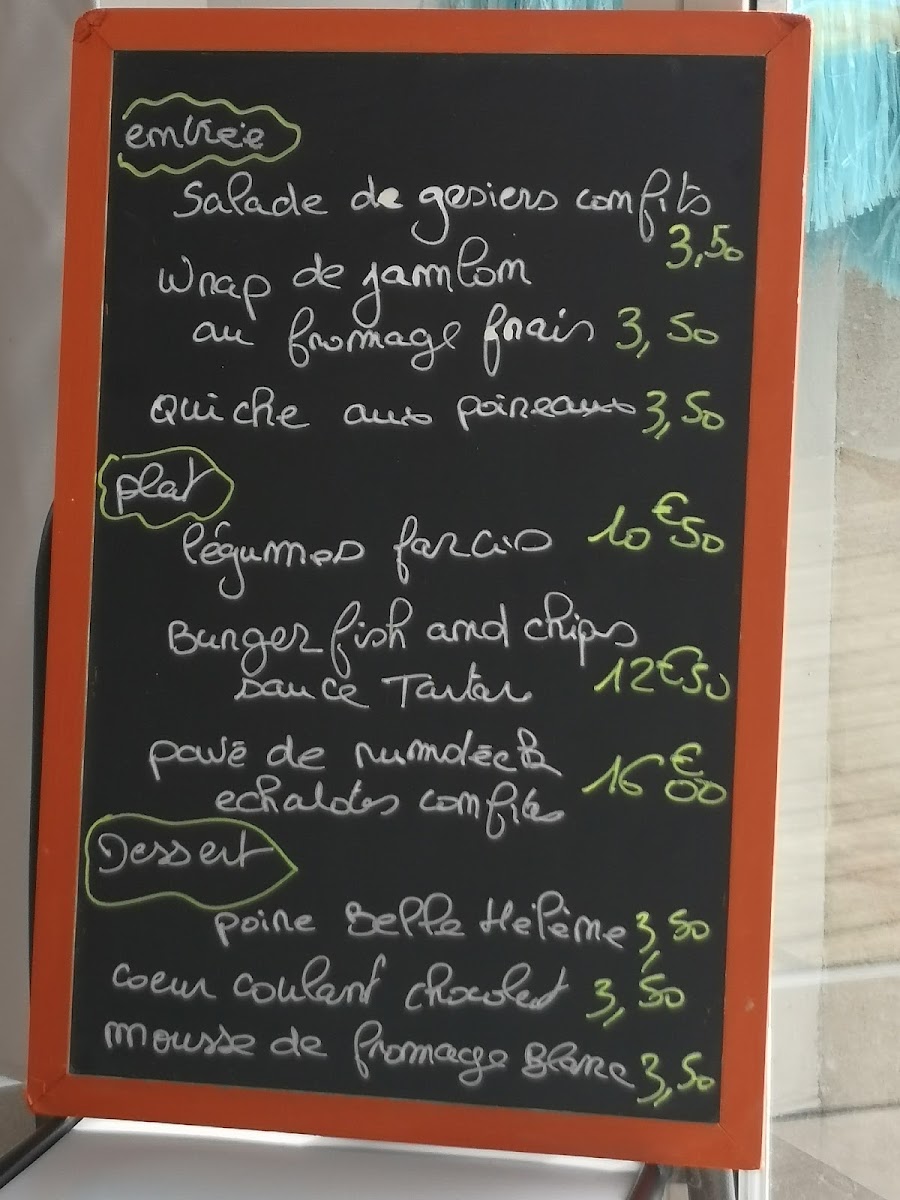 entrée
Salade de gesiers confits
3,50
Wrap de jambon
au fromage frais 3,50
Quiche aux poireaux 3,50
plat
légumes farcis 10€50
Burger fish and chips
sauce Tartar 12€50
pavé de rumsteck
echalotes confites 16€00
Dessert
poire Belle Hélène 3,50
coeur coulant chocolat 3,50
mousse de fromage Blanc 3,50